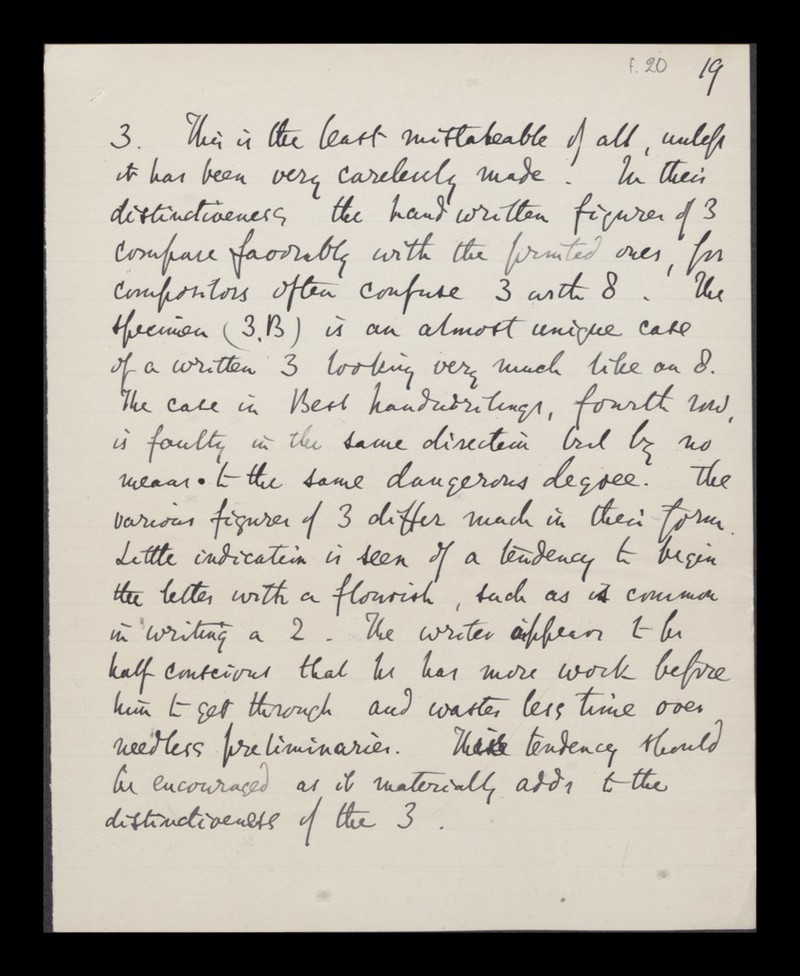 f. 20 19
3. This is the least mistakeable of all, unless
it has been very carelessly made. In their
distinctiveness the hand written figures of 3
compare favorably with the printed ones, for
compositors often confuse 3 with 8. The
specimen (3.B) is an almost unique case
of a written 3 looking very much like an 8.
The case in Best handwritings, fourth row,
is faulty in the same direction but by no
means to the same dangerous degree. The
various figures of 3 differ much in their form.
Little indication is seen of a tendency to begin
the letter with a flourish, such as is common
in writing a 2. The writer appears to be
half conscious that he has more work before
him to get through and wastes less time over
needless preliminaries. This tendency should
be encouraged as it materially adds to the
distinctiveness of the 3.